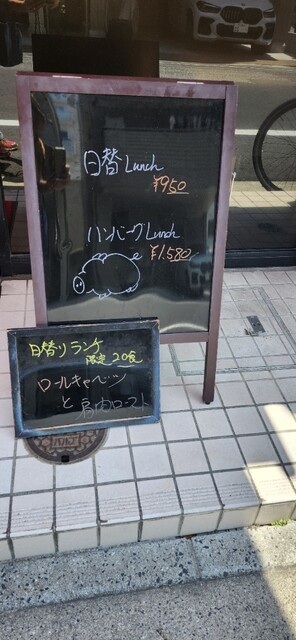 日替Lunch
¥950
ハンバーグLunch
¥1.580
日替りランチ
限定20食
ロールキャベツ
と肩肉ロースト